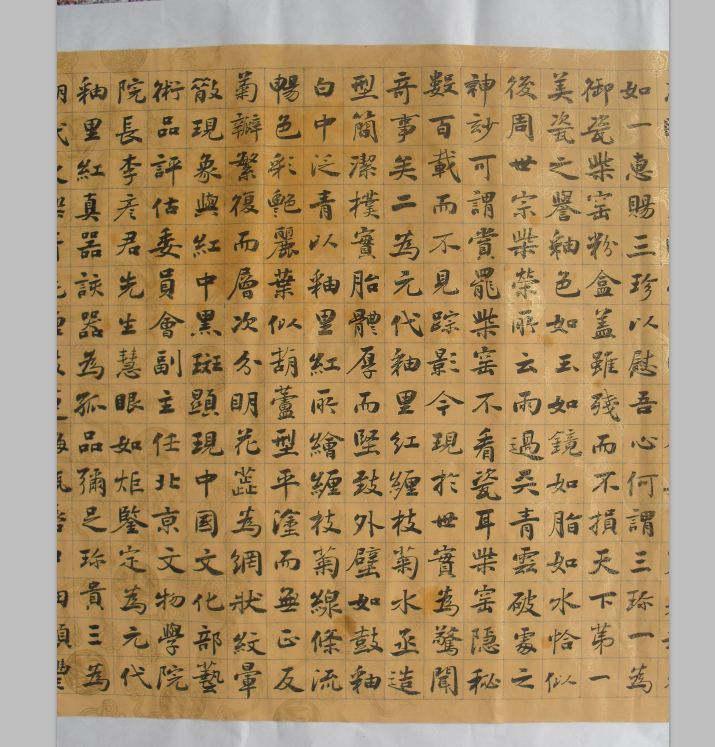 如一惠賜三珍以慰吾心何謂三珎一為
御瓷柴窑粉盒蓋雖殘而不損天下第一
美瓷之譽釉色如玉如鏡如脂如水恰似
後周世宗柴榮所云雨過天青雲破處之
神玅可謂賞罷柴窑不看瓷耳柴窑隱秘
數百載而不見踪影今現於世實為驚聞
奇事矣二為元代釉里红纏枝菊水丞造
型簡潔樸實胎體厚而堅致外壁如鼓釉
白中泛青以釉里紅所繪纏枝菊線條流
暢色彩艷麗葉似葫蘆型平塗而無正反
菊瓣繁復而層次分明花蕊為網狀紋暈
散現象與紅中黑斑顯現中國文化部藝
術品評估委員會副主任北京文物學院
院長李彥君先生慧眼如炬鑒定為元代
釉里紅真器該器為孤品彌足珎貴三為